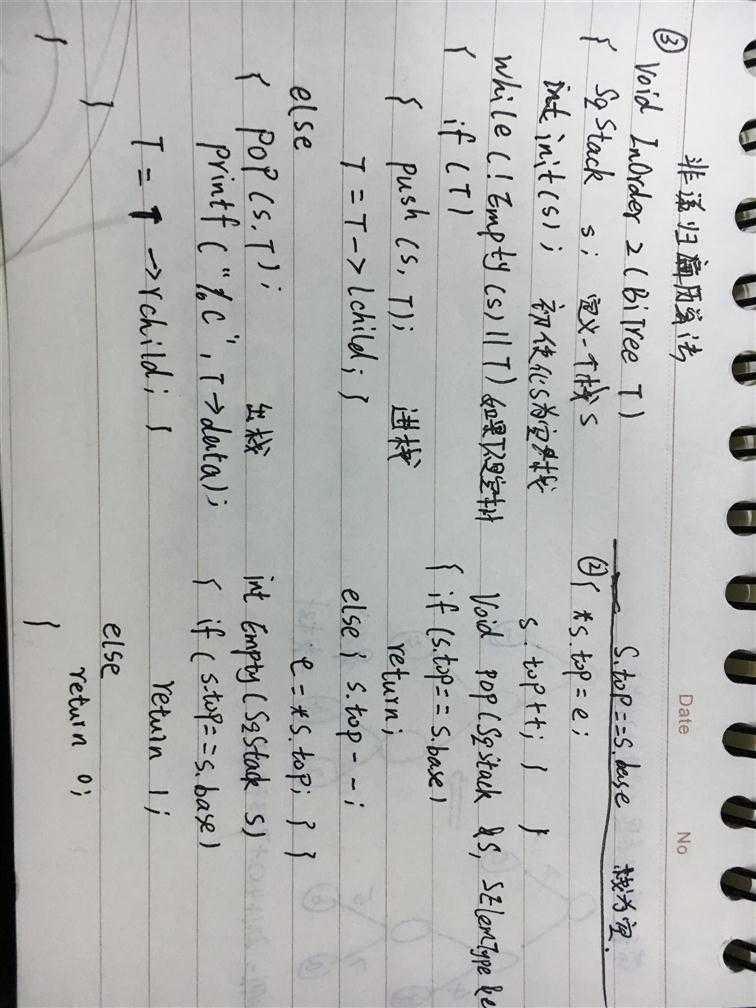 Date
No
非递归遍历算法
③ Void InOrder2(BiTree T)
{ SqStack s; 定义一个栈s
int init(s); 初使化s为空栈
while(!Empty(s)||T) 如果T不是空树
{ if(T)
{ push(s,T); 进栈
T=T->lchild; }
else
{ pop(s,T); 出栈
printf("%c",T->data);
T=T->rchild; }
}
}
S.top==S.base 栈为空.
② { *s.top=e;
s.top++; } }
Void pop(SqStack &S, SElemType &e
{ if(s.top==s.base)
return;
else { s.top--;
e=*s.top; } }
int Empty(SqStack S)
{ if(s.top==s.base)
return 1;
else
return 0;
}